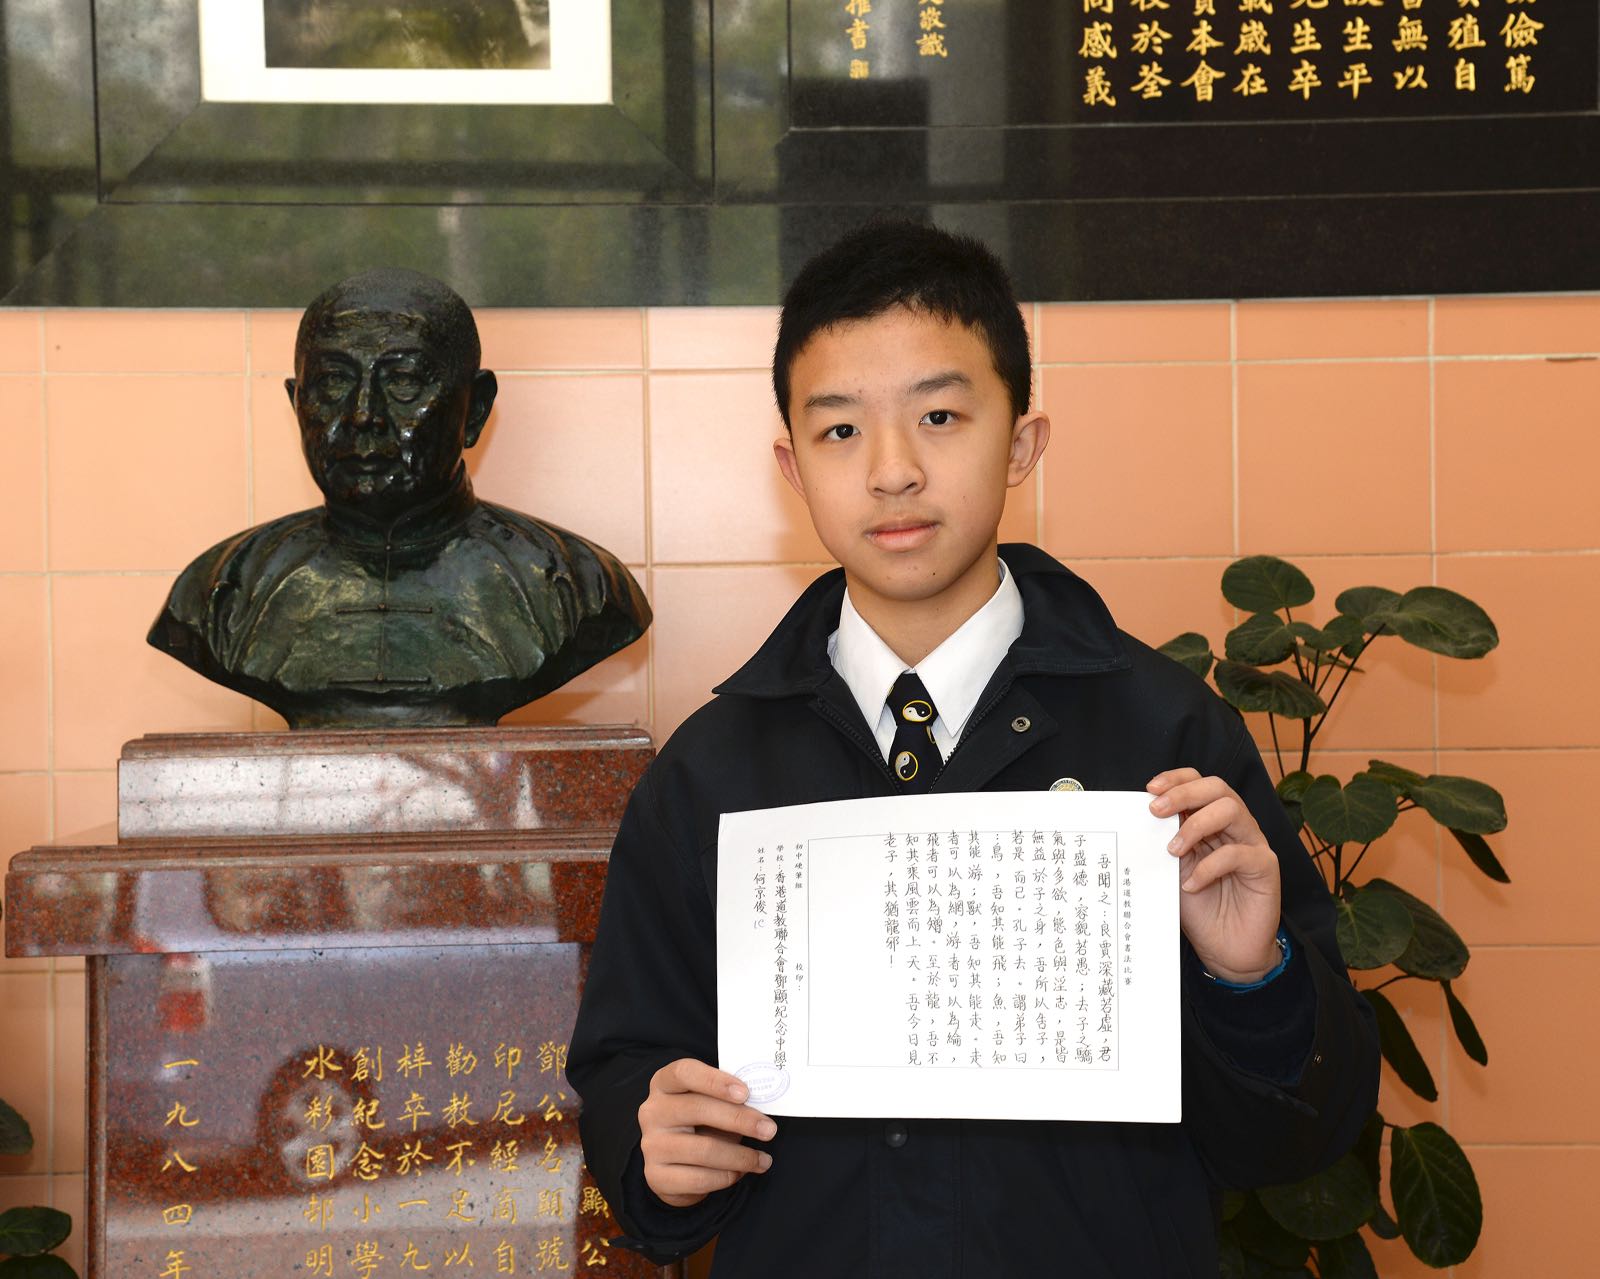 儉篤
殖自
無以
生平
生卒
歲在
本會
於荃
感義
敬識
推書
香港道教聯合會書法比賽
吾聞之:良賈深藏若虛,君
子盛德,容貌若愚;去子之驕
氣與多欲,態色與淫志,是皆
無益於子之身,吾所以告子,
若是而已。孔子去。謂弟子曰
:鳥,吾知其能飛;魚,吾知
其能游;獸,吾知其能走。走
者可以為網,游者可以為綸,
飛者可以為矰。至於龍,吾不
知其乘風雲而上天。吾今日見
老子,其猶龍邪!
初中硬筆組 校印:
學校:香港道教聯合會鄧顯紀念中學
姓名:何京俊 1C
顯公
鄧公名顯號
印尼經商自
勸教不足以
梓卒於一九
創紀念小學
水彩園邨明
一九八四年